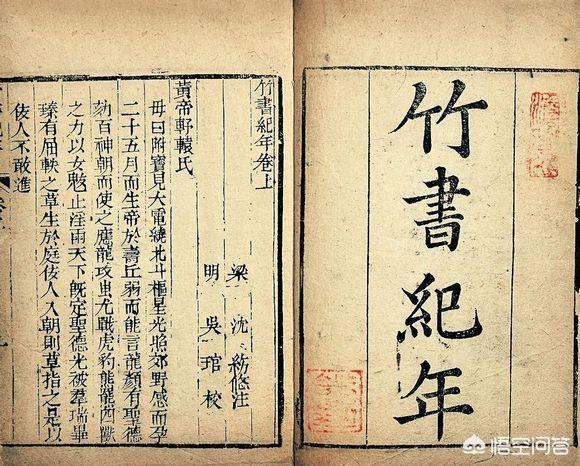 竹書紀年
竹書紀年卷上
梁 沈 約附注
明 吳 琯 校
黃帝軒轅氏
母曰附寶見大電繞北斗樞星光照郊野感而孕
二十五月而生帝於壽丘弱而能言龍顏有聖德
劾百神朝而使之應龍攻蚩尤戰虎豹熊羆四獸
之力以女魃止淫雨天下旣定聖德光被羣瑞畢
臻有屈軼之草生於庭佞人入朝則草指之是以
佞人不敢進
悟空问答